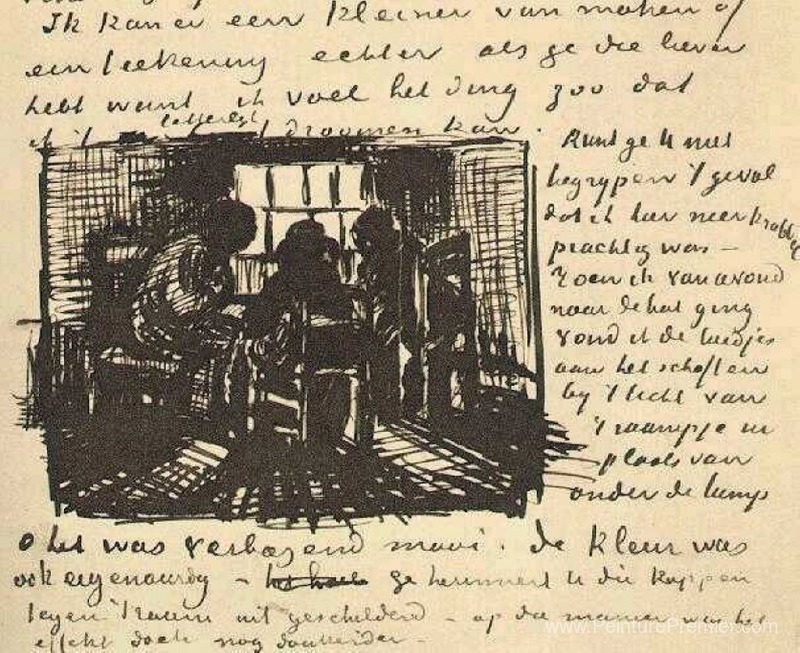 Ik kan er een kleiner van maken of
een teekening echter als ge die liever
hebt want ik voel het ding zoo dat
ik 't letterlijk droomen kan.
Kunt ge U niet
begrypen 't geval
dat ik hier neerkrabbel
prachtig was —
Toen ik van avond
naar de hut ging
vond ik de luidjes
aan het schoften
by 't licht van
't raampje in
plaats van
onder de lamp
o het was verbazend mooi. de kleur was
ook eigenaardig — ge herinnert U die koppen
tegen 't raam uit geschilderd — op die manier was het
effekt doch nog donkerder —
www.PeinturePremier.com